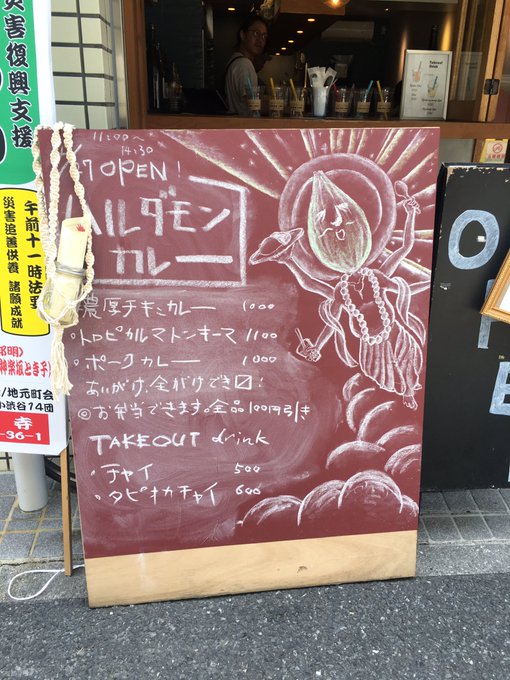 11:00〜
14:30
OPEN!
ハルダモン
カレー
濃厚チキンカレー 1000
・トロピカルマトンキーマ 1100
・ポークカレー 1000
あいがけ、全がけできマス!
◎お弁当できます。全品100円引き
TAKEOUT drink
・チャイ 500
・タピオカチャイ 600
災害復興支援
午前十一時法
災害追善供養 諸願成就
神楽坂とき子
/地元町会
小渋谷14団
寺
-36-1
O
P
E